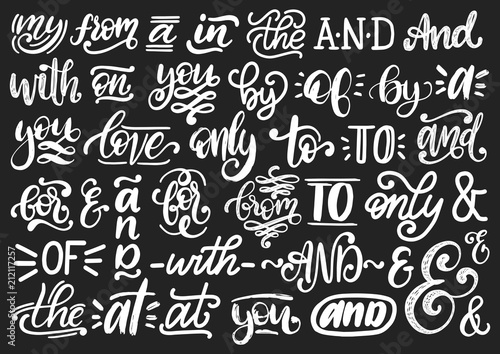 my from a in the A·N·D And
with on you by of by a
you love only to TO and
for & and for from TO only &
OF -with- ~AND~ & & &
the at at you and &